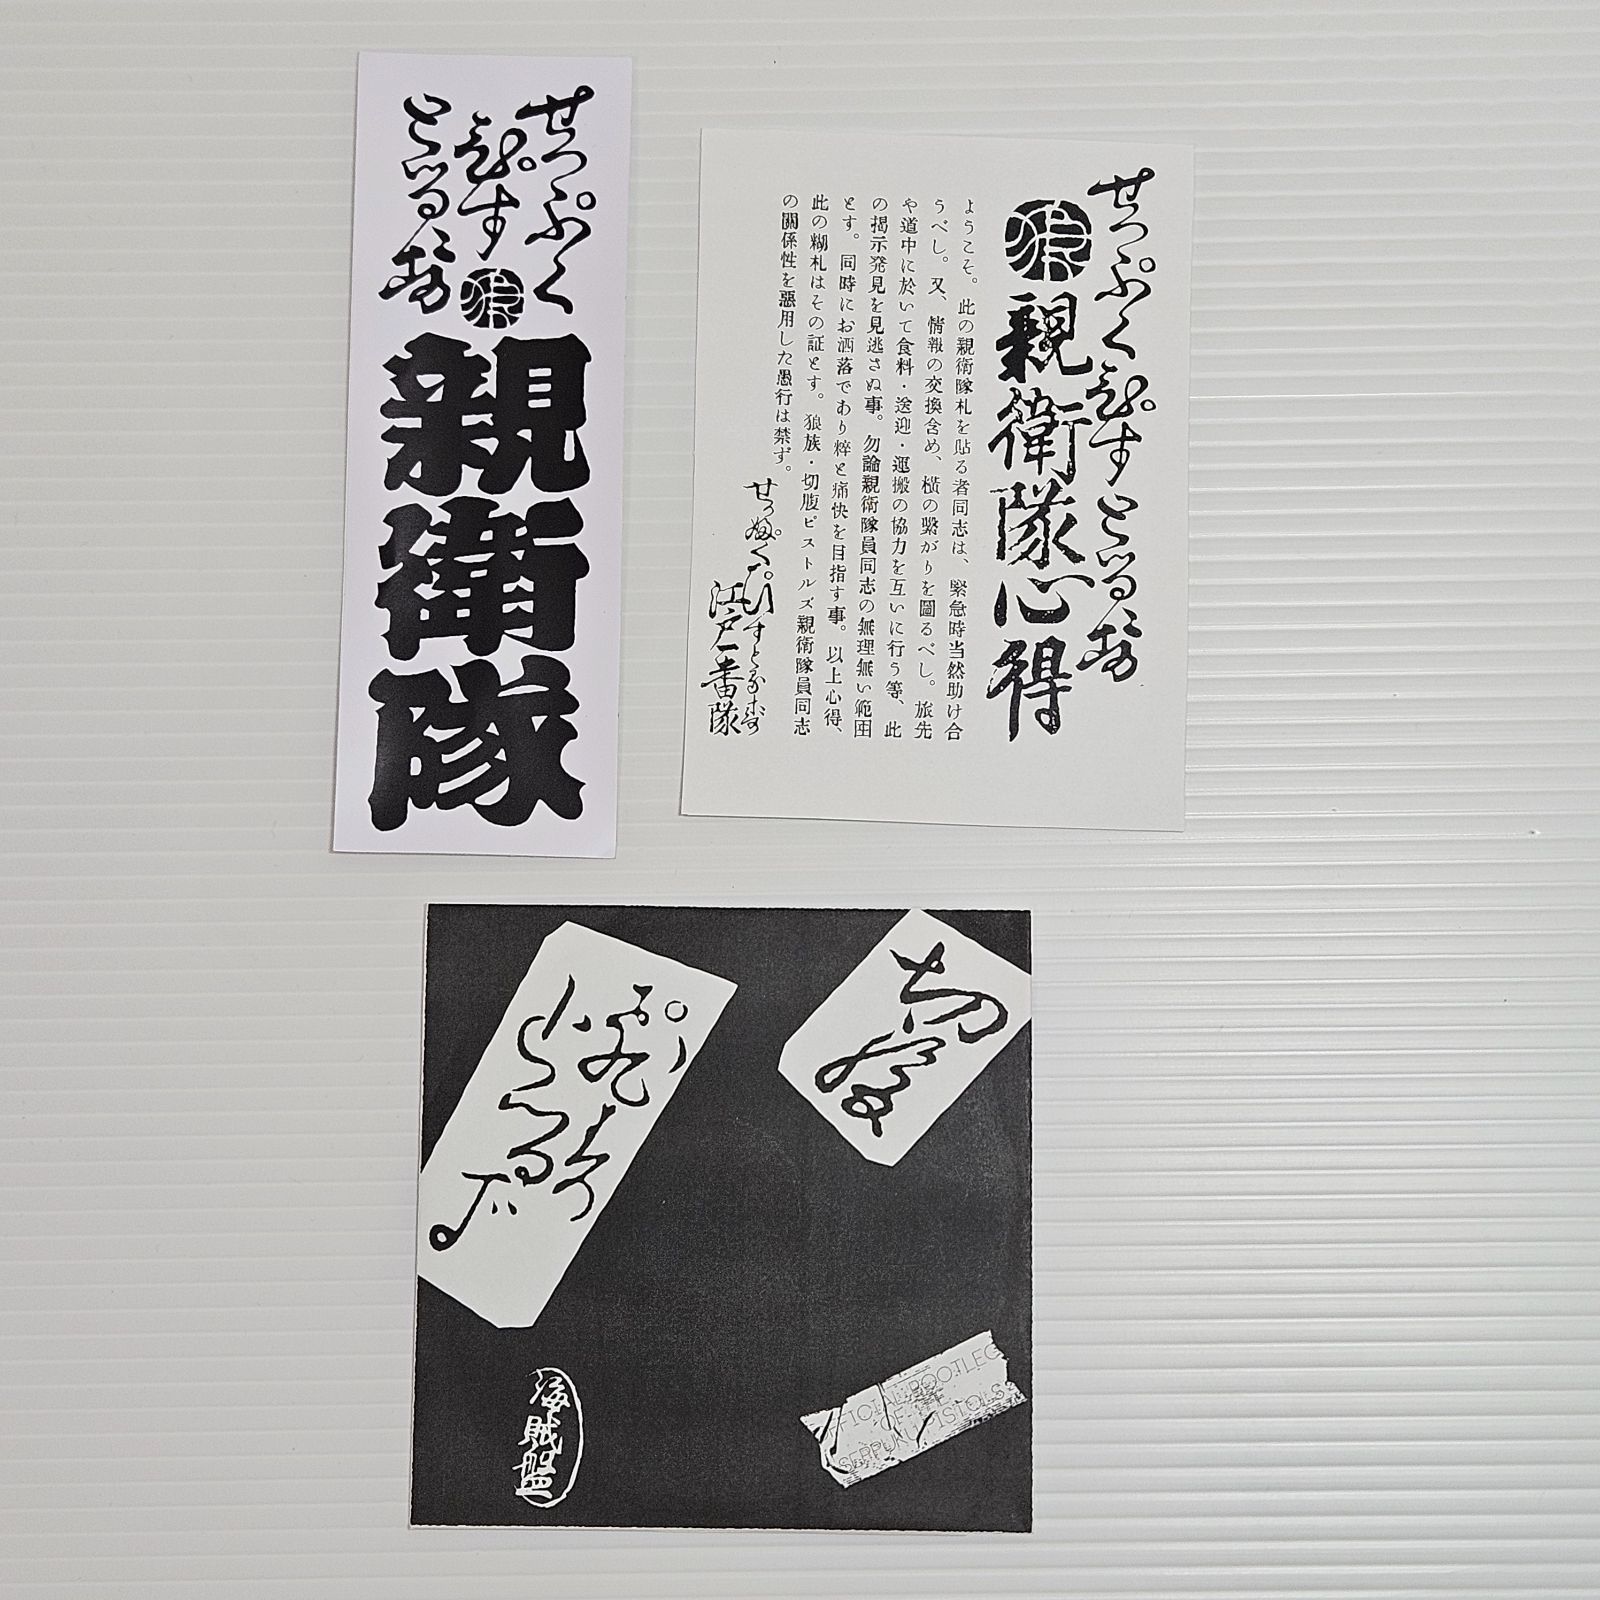 せっぷく
ぴす
とるず
親衛隊
せっぷくぴすとるず
親衛隊心得
ようこそ。此の親衛隊札を貼る者同志は、緊急時当然助け合
うべし。又、情報の交換含め、横の繋がりを圖るべし。旅先
や道中に於いて食料・送迎・運搬の協力を互いに行う等、此
の掲示発見を見逃さぬ事。勿論親衛隊員同志の無理無い範囲
とす。同時にお洒落であり粋と痛快を目指す事。以上心得、
此の糊札はその証とす。狼族・切腹ピストルズ親衛隊員同志
の關係性を惡用した愚行は禁ず。
せっぷくぴすとるず
江戸一番隊
切腹
海賊盤
OFFICIAL BOOTLEG
OF THE
SEPPUKU PISTOLS